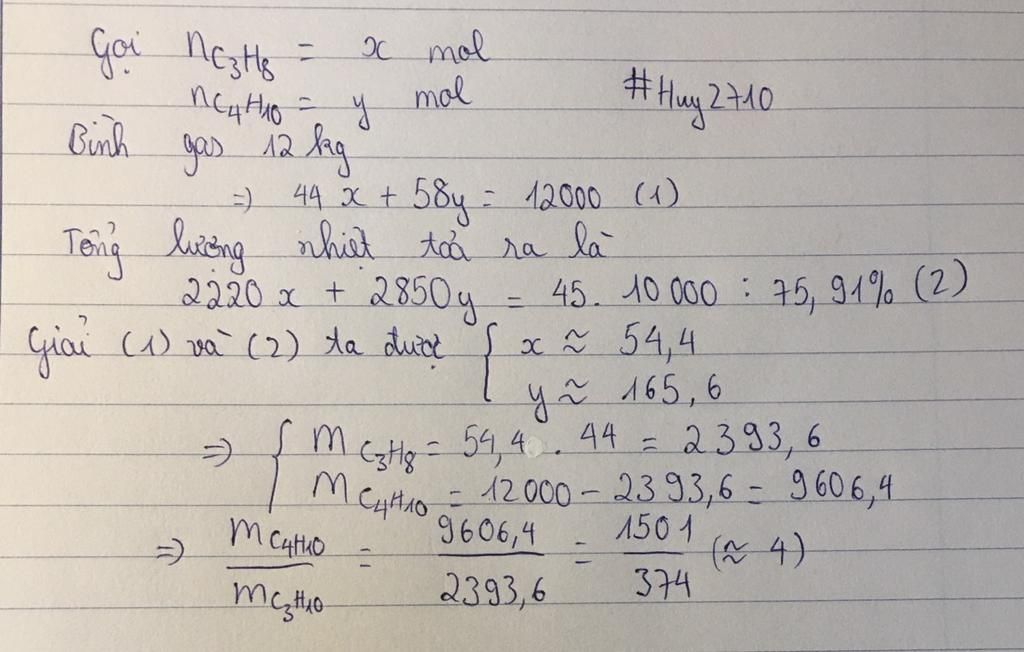 Gọi nC3H8 = x mol
nC4H10 = y mol #Huy2710
Bình gas 12 kg
=> 44x + 58y = 12000 (1)
Tổng lượng nhiệt toả ra là
2220x + 2850y = 45. 10 000 : 75,91% (2)
Giải (1) và (2) ta được { x ≈ 54,4
y ≈ 165,6
=> { mC3H8 = 54,4 . 44 = 2393,6
mC4H10 = 12000 - 2393,6 = 9606,4
=> mC4H10 / mC3H10 = 9606,4 / 2393,6 = 1501 / 374 (≈ 4)